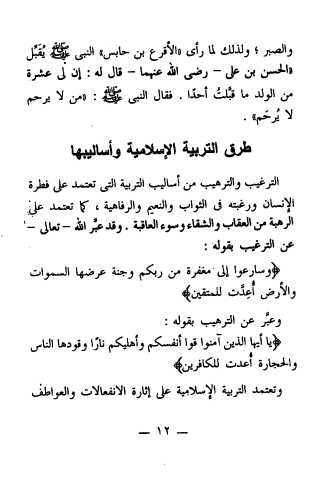 والصبر ؛ ولذلك لما رأى «الأقرع بن حابس» النبى ﷺ يُقَبِّل
«الحسن بن على – رضى الله عنهما – قال له : إن لى عشرة
من الولد ما قبَّلتُ أحدًا . فقال النبى ﷺ : «من لا يرحم
لا يُرحَم» .
طرق التربية الإسلامية وأساليبها
الترغيب والترهيب من أساليب التربية التى تعتمد على فطرة
الإنسان ورغبته فى الثواب والنعيم والرفاهية ، كما تعتمد على
الرهبة من العقاب والشقاء وسوء العاقبة . وقد عبَّر الله – تعالى –
عن الترغيب بقوله :
﴿وسارعوا إلى مغفرة من ربكم وجنة عرضها السموات
والأرض أُعِدَّت للمتقين﴾
وعبَّر عن الترهيب بقوله :
﴿يا أيها الذين آمنوا قوا أنفسكم وأهليكم نارًا وقودها الناس
والحجارة أُعدت للكافرين﴾
وتعتمد التربية الإسلامية على إثارة الانفعالات والعواطف
– ١٢ –